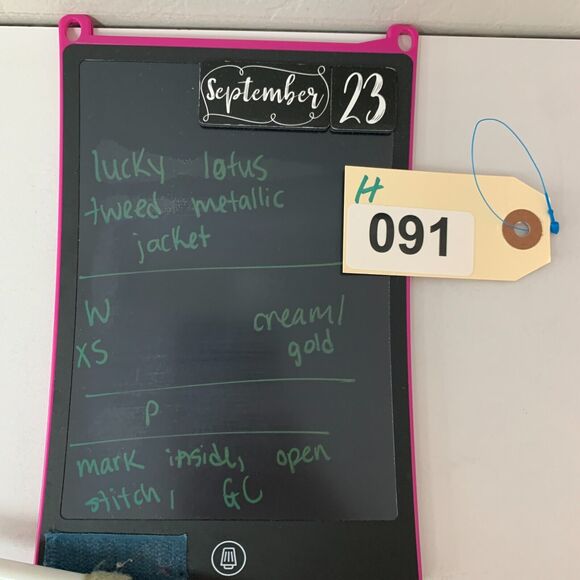 September 23
lucky lotus
tweed metallic
jacket
H
091
W cream/
XS gold
P
mark inside, open
stitch, GC